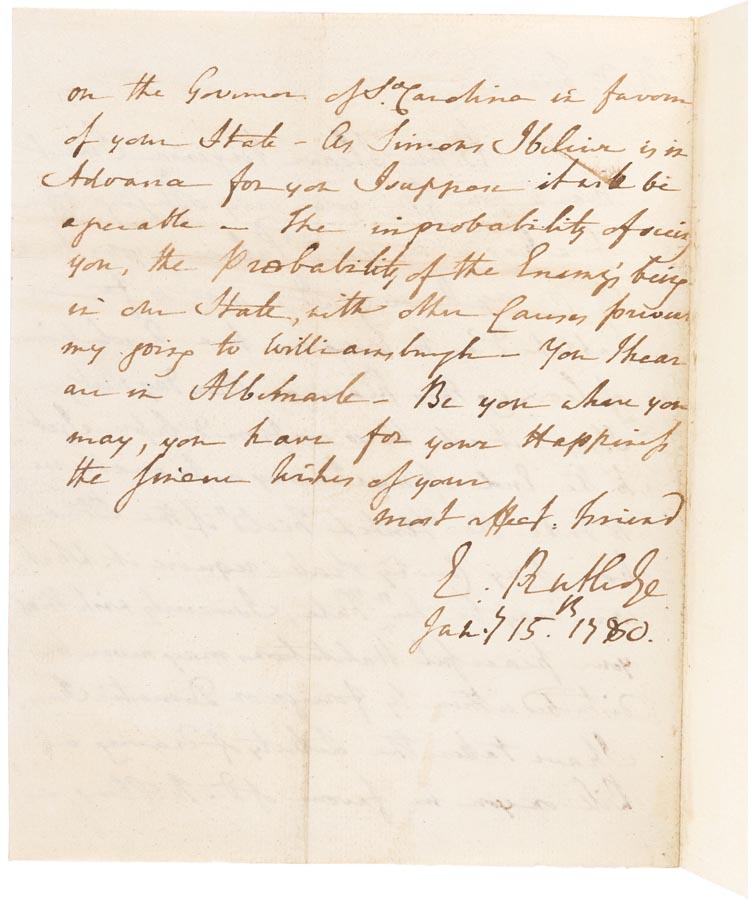 on the Governor of So. Carolina in favour
of your State – As Simons I believe is in
Advance for you I suppose it will be
agreeable – The improbability of seeing
you, the Probability of the Enemy's being
in our State, with other Causes prevent
my going to Williamsburgh – You I hear
are in Albemarle – Be you where you
may, you have for your Happiness
the sincere Wishes of your
most affect: friend
E. Rutledge
Jany 15th 1780.